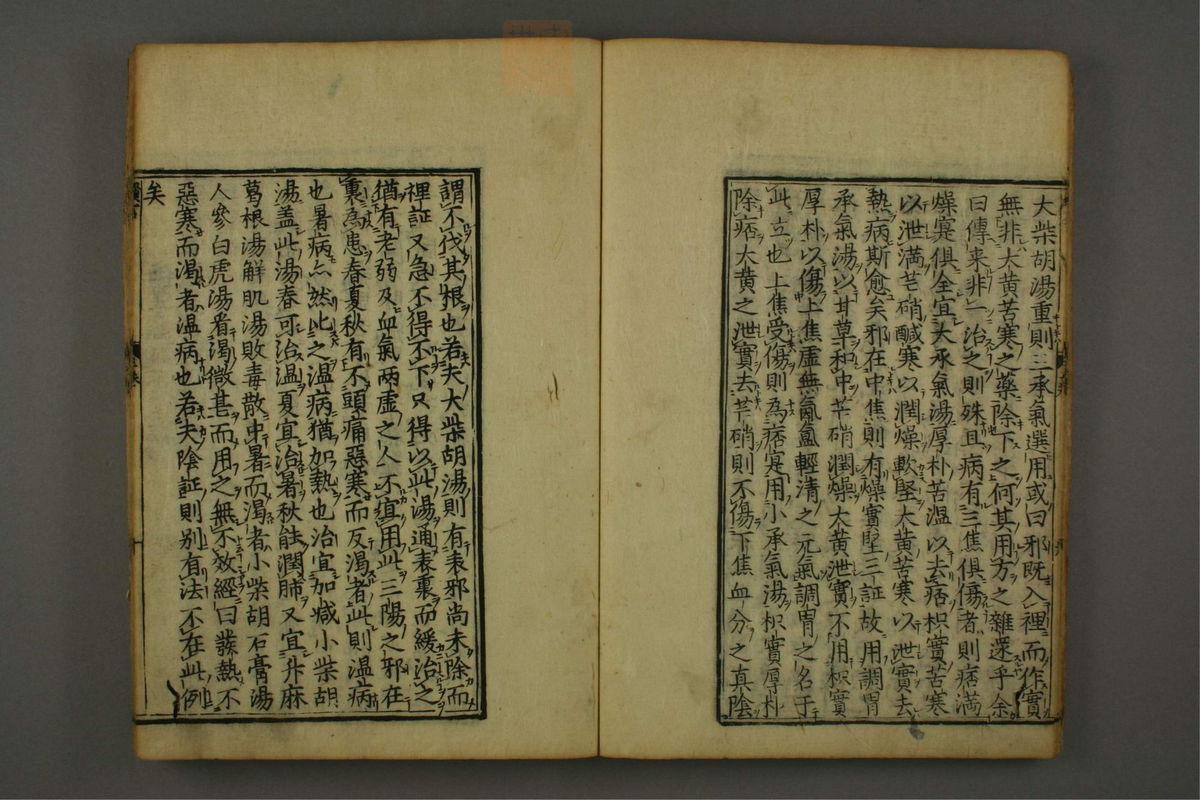 大柴胡湯重則三承氣選用或曰邪既入裡而作實
無非大黄苦寒之藥除下之何其用方之雜還乎余
曰傳来非一治之則殊且病有三焦俱傷者則痞満
燥寔俱全宜大承氣湯厚朴苦温以去痞枳實苦寒
以泄満芒硝鹹寒以潤燥軟堅大黄苦寒以泄實去
熱病斯愈矣邪在中焦則有燥實堅三証故用調胃
承氣湯以甘草和中芒硝潤燥大黄泄實不用枳實
厚朴以傷上焦虚無氤氳輕清之元氣調胃之名于
此立也上焦受傷則為痞寔用小承氣湯枳實厚朴
除痞大黄之泄實去芒硝則不傷下焦血分之真陰
謂不伐其根也若夫大柴胡湯則有表邪尚未除而
裡証又急不得不下只得以此湯通表裏而緩治之
猶有老弱及血氣兩虚之人不宜用此三陽之邪在
裏為患春夏秋有不頭痛惡寒而反渇者此則温病
也暑病亦然比之温病猶加熱也治宜加减小柴胡
湯盖此湯春可治温夏宜治暑秋能潤肺又宜升麻
葛根湯解肌湯敗毒散中暑而渇者小柴胡石膏湯
人參白虎湯看渇微甚而用之無不效經曰發熱不
惡寒而渇者温病也若夫陰証則别有法不在此例
矣